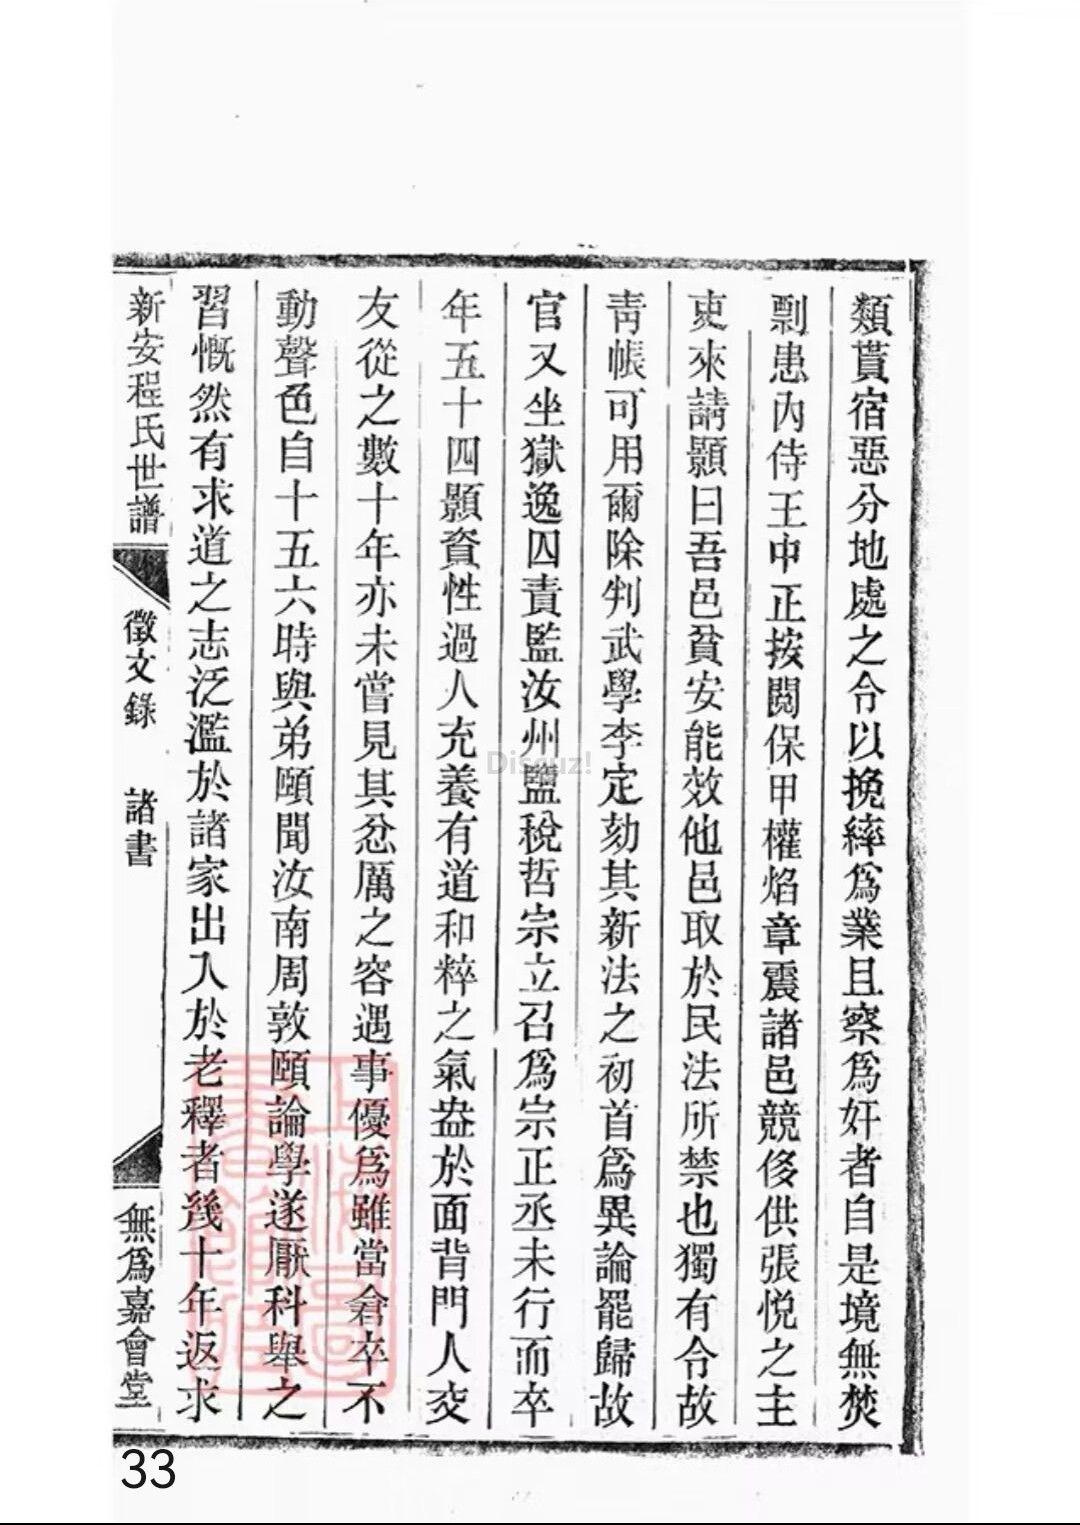 類貰宿惡分地處之令以挽繂爲業且察爲奸者自是境無焚
剽患內侍王中正按閱保甲權焰章震諸邑競侈供張悅之主
吏來請顥曰吾邑貧安能效他邑取於民法所禁也獨有令故
青帳可用爾除判武學李定劾其新法之初首爲異論罷歸故
官又坐獄逸囚責監汝州鹽稅哲宗立召爲宗正丞未行而卒
年五十四顥資性過人充養有道和粹之氣盎於面背門人交
友從之數十年亦未嘗見其忿厲之容遇事優爲雖當倉卒不
動聲色自十五六時與弟頤聞汝南周敦頤論學遂厭科舉之
習慨然有求道之志泛濫於諸家出入於老釋者幾十年返求
新安程氏世譜 徵文錄 諸書 無爲嘉會堂
Discuz!
33